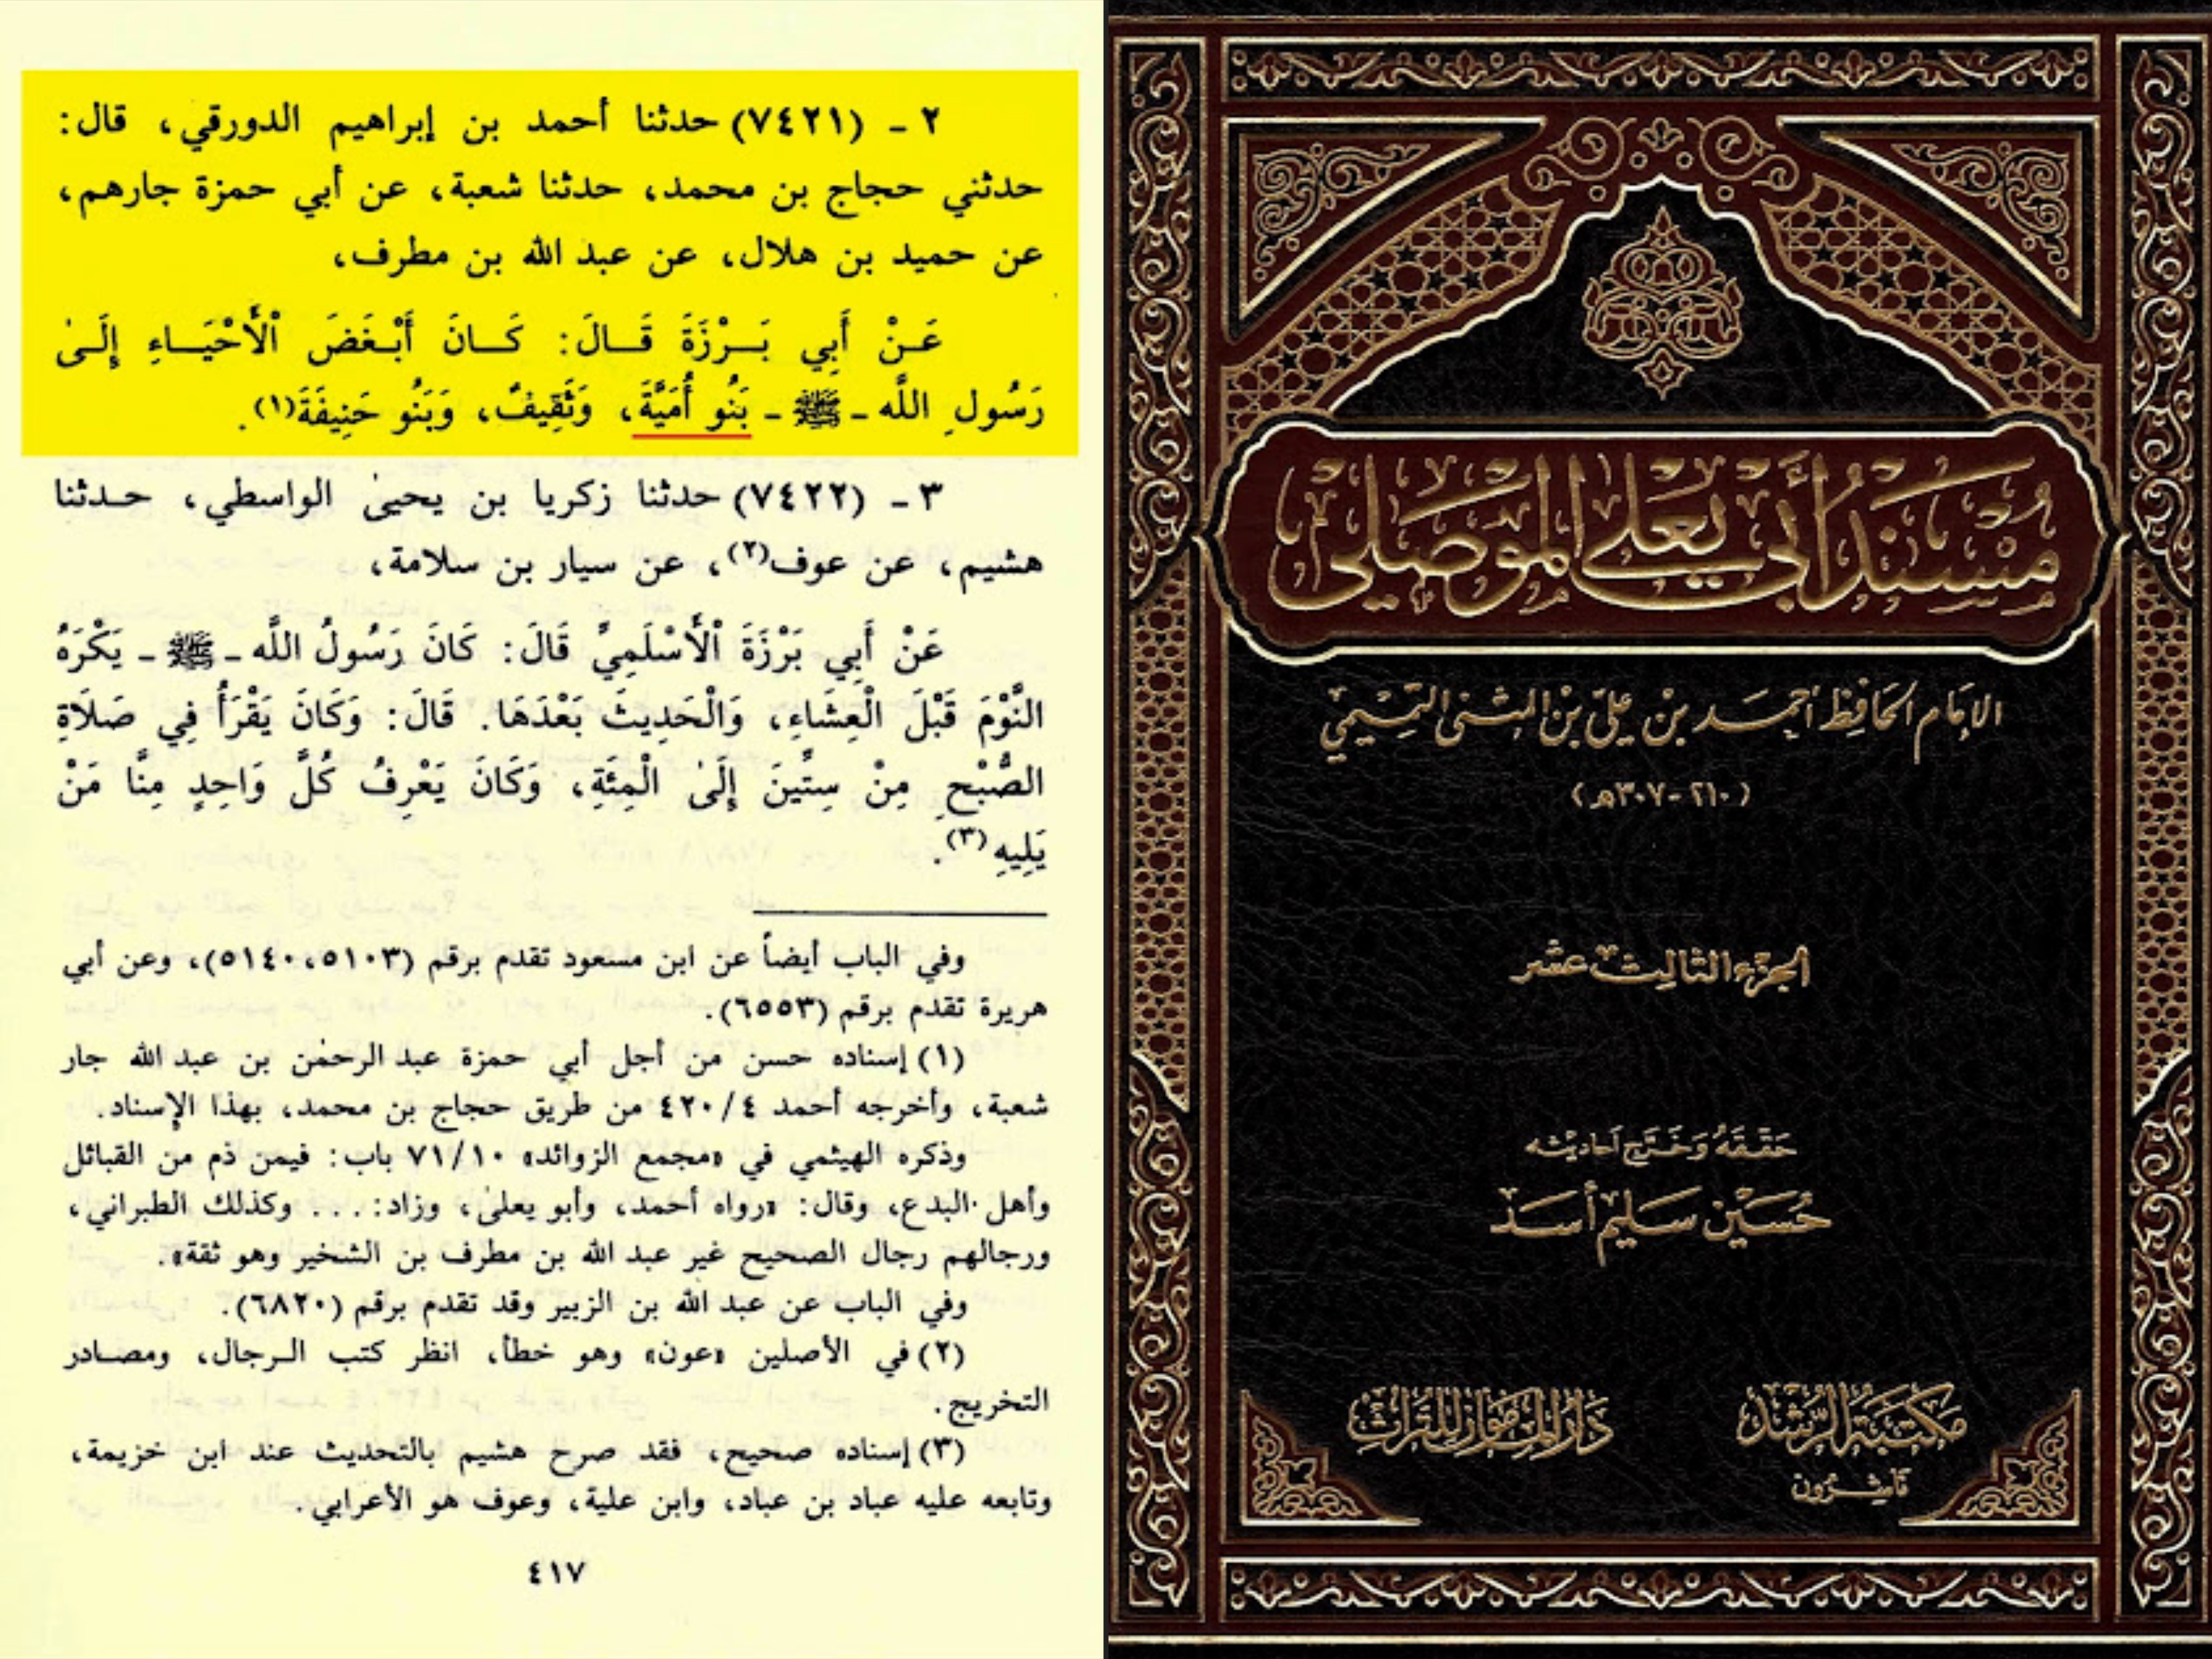 ٢ - (٧٤٢١) حدثنا أحمد بن إبراهيم الدورقي، قال:
حدثني حجاج بن محمد، حدثنا شعبة، عن أبي حمزة جارهم،
عن حميد بن هلال، عن عبد الله بن مطرف،
عَـنْ أَبِي بَـرْزَةَ قَـالَ: كَـانَ أَبْـغَضَ ٱلْأَحْيَـاءِ إِلَـىٰ
رَسُولِ اللَّه - ﷺ - بَنُو أُمَيَّةَ، وَثَقِيفٌ، وَبَنُو حَنِيفَةَ(١).
٣ - (٧٤٢٢) حدثنا زكريا بن يحيىٰ الواسطي، حـدثنا
هشيم، عن عوف(٢)، عن سيار بن سلامة،
عَنْ أَبِي بَرْزَةَ ٱلْأَسْلَمِيِّ قَالَ: كَانَ رَسُولُ اللَّه - ﷺ - يَكْرَهُ
النَّوْمَ قَبْلَ الْعِشَاءِ، وَالْحَدِيثَ بَعْدَهَا. قَالَ: وَكَانَ يَقْرَأُ فِي صَلَاةِ
الصُّبْحِ مِنْ سِتِّينَ إِلَىٰ الْمِئَةِ، وَكَانَ يَعْرِفُ كُلَّ وَاحِدٍ مِنَّا مَنْ
يَلِيهِ(٣).
وفي الباب أيضاً عن ابن مسعود تقدم برقم (٥١٠٣، ٥١٤٠)، وعن أبي
هريرة تقدم برقم (٦٥٥٣).
(١) إسناده حسن من أجل أبي حمزة عبد الرحمٰن بن عبد الله جار
شعبة، وأخرجه أحمد ٤/٤٢٠ من طريق حجاج بن محمد، بهذا الإسناد.
وذكره الهيثمي في «مجمع الزوائد» ٧١/١٠ باب: فيمن ذم من القبائل
وأهل البدع، وقال: «رواه أحمد، وأبو يعلىٰ، وزاد: ... وكذلك الطبراني،
ورجالهم رجال الصحيح غير عبد الله بن مطرف بن الشخير وهو ثقة».
وفي الباب عن عبد الله بن الزبير وقد تقدم برقم (٦٨٢٠).
(٢) في الأصلين «عون» وهو خطأ، انظر كتب الـرجال، ومصـادر
التخريج.
(٣) إسناده صحيح، فقد صرح هشيم بالتحديث عند ابن خزيمة،
وتابعه عليه عباد بن عباد، وابن علية، وعوف هو الأعرابي.
٤١٧
مُسْنَدُ أَبِي يَعْلَى المَوْصِلِي
الإمام الحافظ أحمد بن علي بن المثنى التميمي
(٢١٠-٣٠٧هـ)
الجزء الثالث عشر
حَقَّقَهُ وَخَرَّجَ أَحَادِيثَه
حُسَيْن سَلِيم أَسَد
مَكتَبَة الرُّشد
نَاشِرُون
دَار المَأمُون لِلتُّرَاث